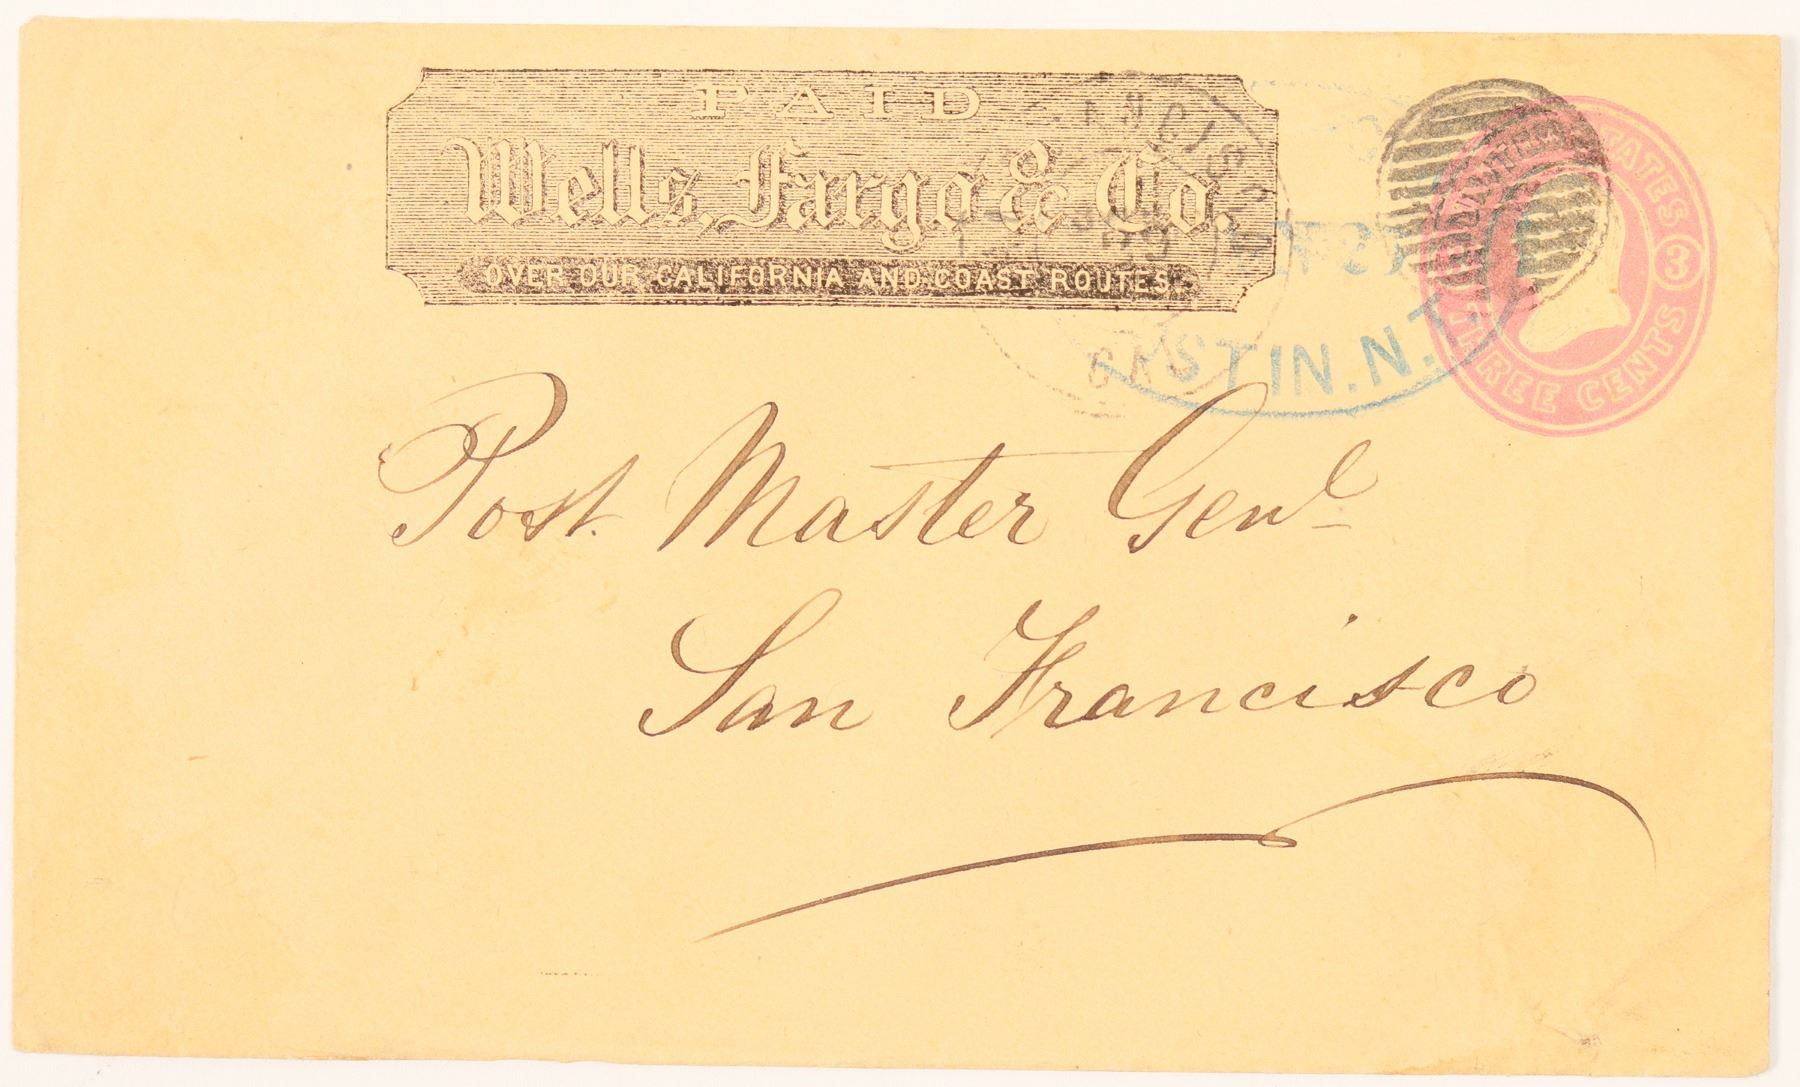 PAID
Wells, Fargo & Co.
OVER OUR CALIFORNIA AND COAST ROUTES.
UNITED STATES
3
THREE CENTS
STIN. N.T.
Post Master Genl
San Francisco